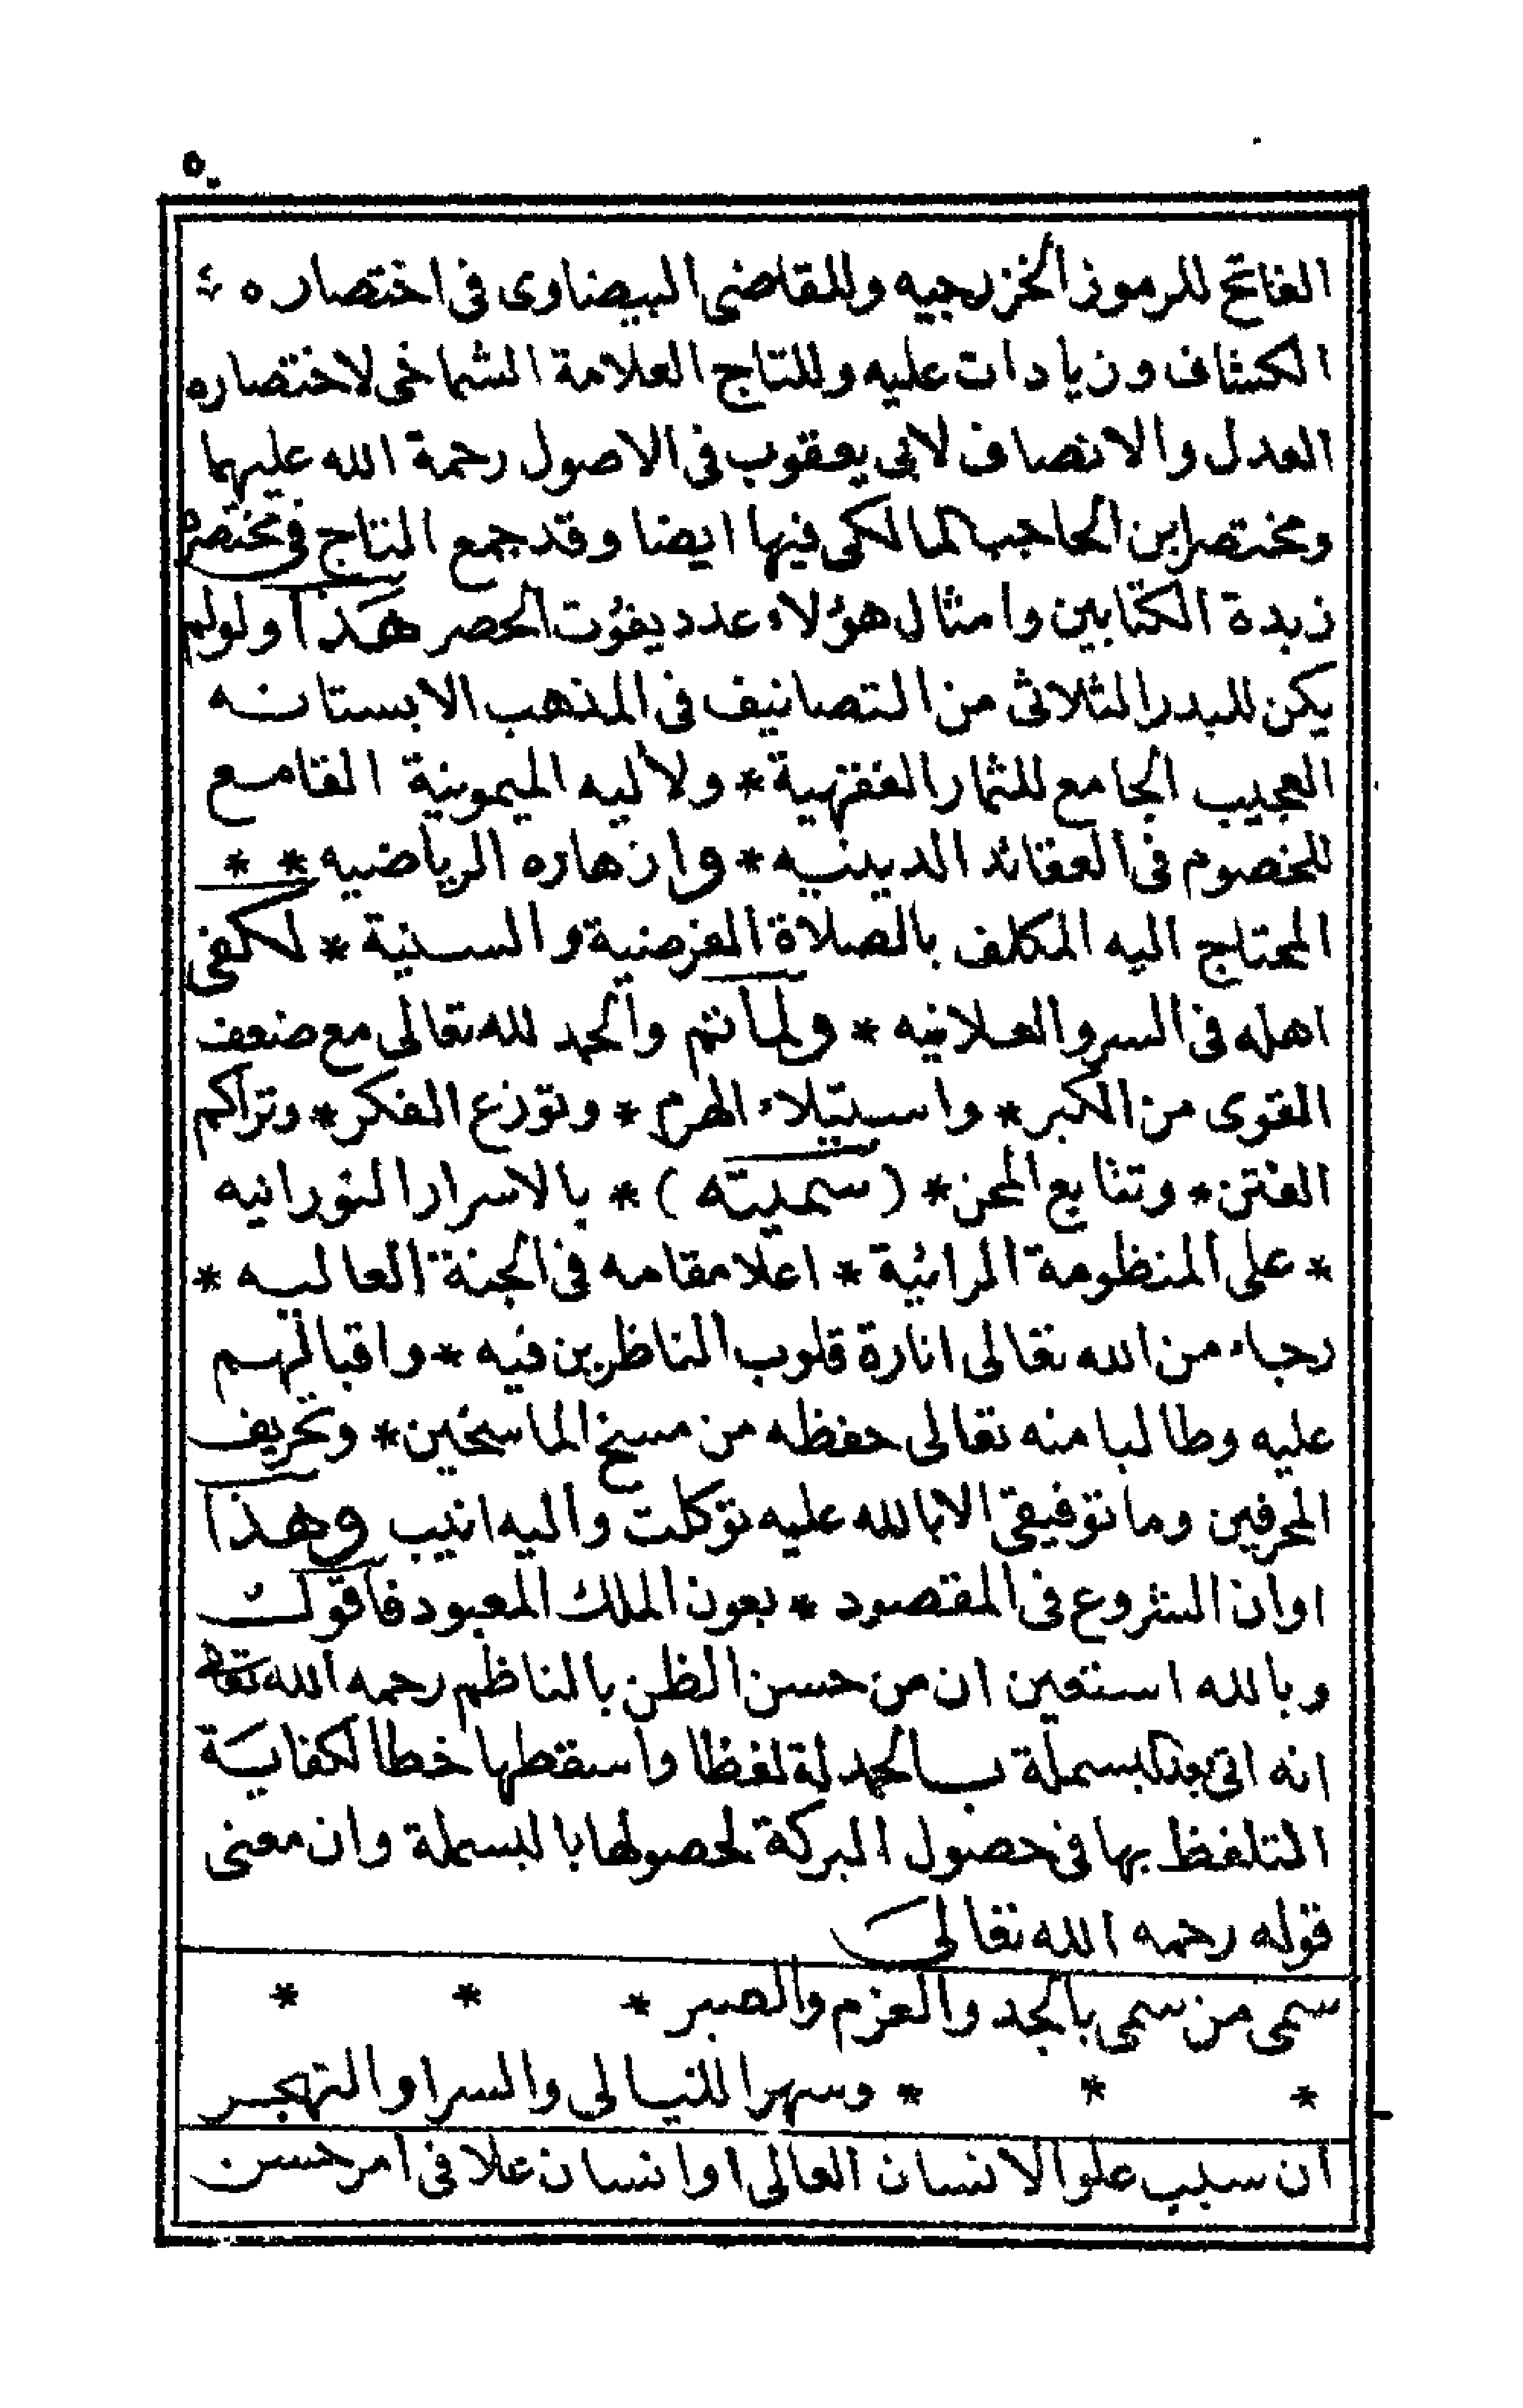 ٥
الفاتح للرموز الخزرجيه وللقاضي البيضاوى فى اختصاره
الكشاف وزيادات عليه وللتاج العلامة الشماخى لاختصاره
العدل والانصاف لابى يعقوب فى الاصول رحمة الله عليهما
ومختصر ابن الحاجب المالكى فيها ايضا وقد جمع التاج فى مختصره
زبدة الكتابين وامثال هؤلاء عدد يفوت الحصر هذا ولو لم
يكن للبدر الثلاثى من التصانيف فى المذهب الا بستانه
العجيب الجامع للثمار الفقهية * ولاليه الميمونية القامع
للخصوم فى العقائد الدينيه * وازهاره الرياضيه * *
المحتاج اليه المكلف بالصلاة الفرضية والسنية * لكفى
اهله فى السر والعلانيه * ولما تم والحمد لله تعالى مع ضعف
القوى من الكبر * واستيلاء الهرم * وتوزع الفكر * وتراكم
الفتن * وتتابع المحن * (سميته) * بالاسرار النورانيه
* على المنظومة الرائية * اعلا مقامه فى الجنة العاليه *
رجاء من الله تعالى انارة قلوب الناظرين فيه * واقبالهم
عليه وطالبا منه تعالى حفظه من مسخ الماسخين * وتحريف
المحرفين وما توفيقى الا بالله عليه توكلت واليه انيب وهذا
اوان الشروع فى المقصود * بعون الملك المعبود فاقول
وبالله استعين ان من حسن الظن بالناظم رحمه الله تعالى
انه اتى بعد البسملة بالحمد لة لفظا واسقطها خطا لكفاية
التلفظ بها فى حصول البركة لحصولها بالبسملة وان معنى
قوله رحمه الله تعالى
سمى من سمى بالجد والعزم والصبر * * *
* * * وسهر الليالى والسرا والتهجر
ان سبب علو الانسان العالى او انسان علا فى امر حسن